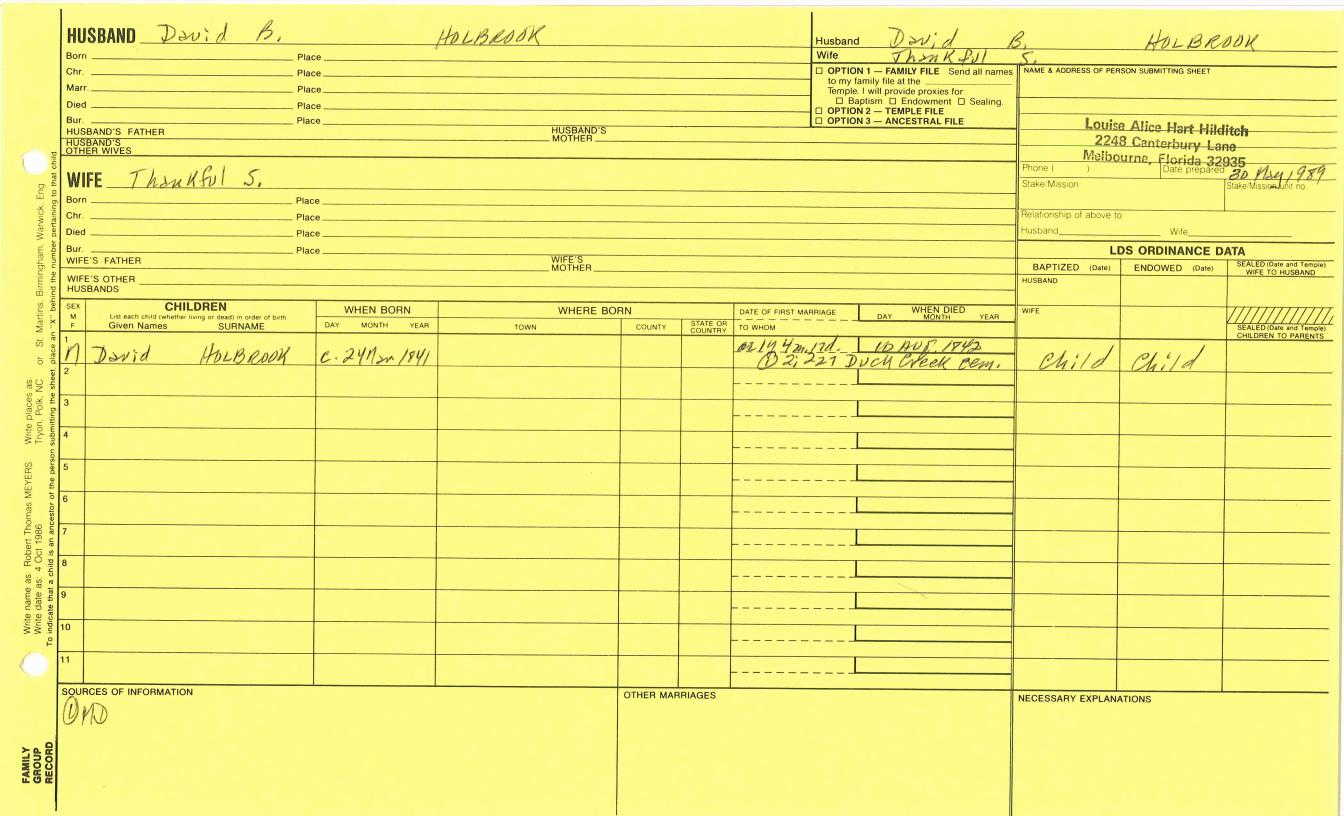 HUSBAND David B. HOLBROOK
Born Place
Chr. Place
Marr. Place
Died Place
Bur. Place
HUSBAND'S FATHER HUSBAND'S MOTHER
HUSBAND'S OTHER WIVES
WIFE Thankful S.
Born Place
Chr. Place
Died Place
Bur. Place
WIFE'S FATHER WIFE'S MOTHER
WIFE'S OTHER HUSBANDS
Husband David B. HOLBROOK
Wife Thankful S.
☐ OPTION 1 — FAMILY FILE Send all names
to my family file at the
Temple. I will provide proxies for
☐ Baptism ☐ Endowment ☐ Sealing.
☐ OPTION 2 — TEMPLE FILE
☐ OPTION 3 — ANCESTRAL FILE
NAME & ADDRESS OF PERSON SUBMITTING SHEET
Louise Alice Hart Hilditch
2248 Canterbury Lane
Melbourne, Florida 32935
Phone ( ) Date prepared 30 May 1989
Stake/Mission Stake/Mission unit no.
Relationship of above to
Husband Wife
LDS ORDINANCE DATA
BAPTIZED (Date) ENDOWED (Date) SEALED (Date and Temple) WIFE TO HUSBAND
HUSBAND
WIFE
SEALED (Date and Temple) CHILDREN TO PARENTS
SEX M F
CHILDREN
List each child (whether living or dead) in order of birth
Given Names SURNAME
WHEN BORN
DAY MONTH YEAR
WHERE BORN
TOWN COUNTY STATE OR COUNTRY
DATE OF FIRST MARRIAGE
TO WHOM
WHEN DIED
DAY MONTH YEAR
1 David HOLBROOK c. 24 Mar 1841 10 AUG 1842 Child Child
① 2; 221 Duck Creek cem.
2
3
4
5
6
7
8
9
10
11
SOURCES OF INFORMATION
OTHER MARRIAGES
NECESSARY EXPLANATIONS
Write name as Robert Thomas MEYERS Write places as: Tryon, Polk, NC or St. Martins, Birmingham, Warwick, Eng
Write date as: 4 Oct 1986
To indicate that a child is an ancestor of the person submitting the sheet, place an "X" behind the number pertaining to that child.
FAMILY
GROUP
RECORD